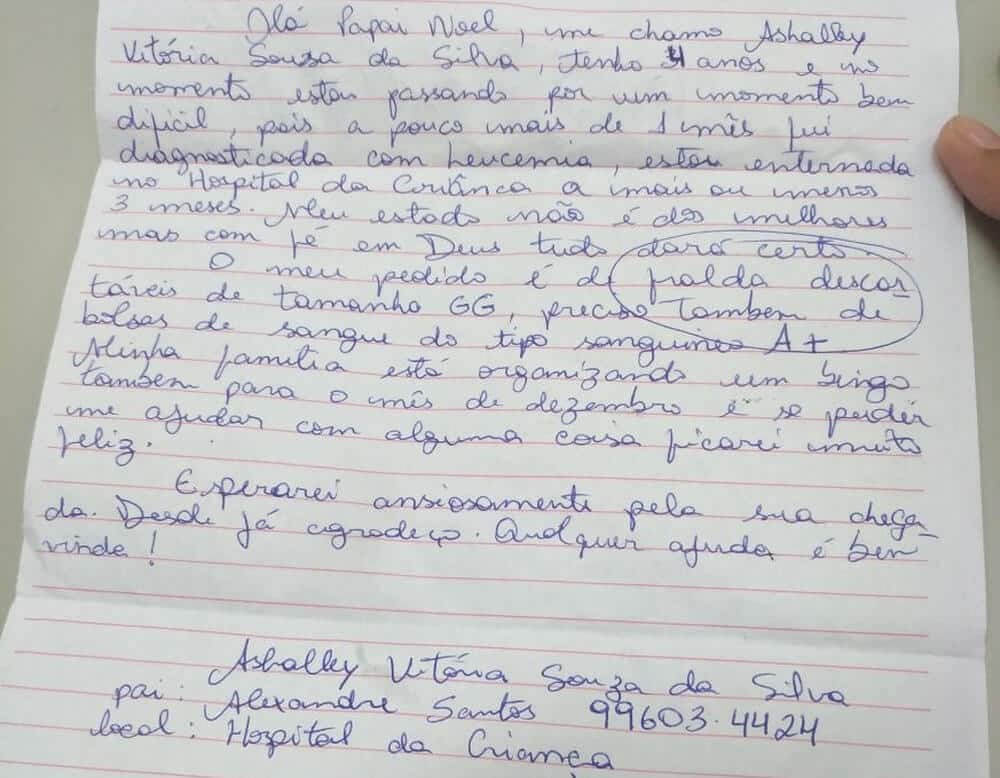 Olá Papai Noel, me chamo Ashalley
Vitória Souza da Silva, tenho 4 anos e no
momento estou passando por um momento bem
dificil, pois a pouco mais de 1 mês fui
diagnosticada com Leucemia, estou enternada
no Hospital da Criânca a mais ou menos
3 meses. Meu estado não é dos melhores
mas com fé em Deus tudo dará certo
O meu pedido é de fralda descar
táveis de tamanho GG, preciso tambem de
bolsas de sangue do tipo sanguineo A+
Minha familia está organizando um bingo
tambem para o mês de dezembro e se puder
me ajudar com alguma coisa ficarei muito
feliz.
Esperarei ansiosamente pela sua chega_
da. Desde já agradeço. Qualquer ajuda é bem
vinda!
Ashalley Vitória Souza da Silva
pai: Alexandre Santos 99603.4424
local: Hospital da Criança